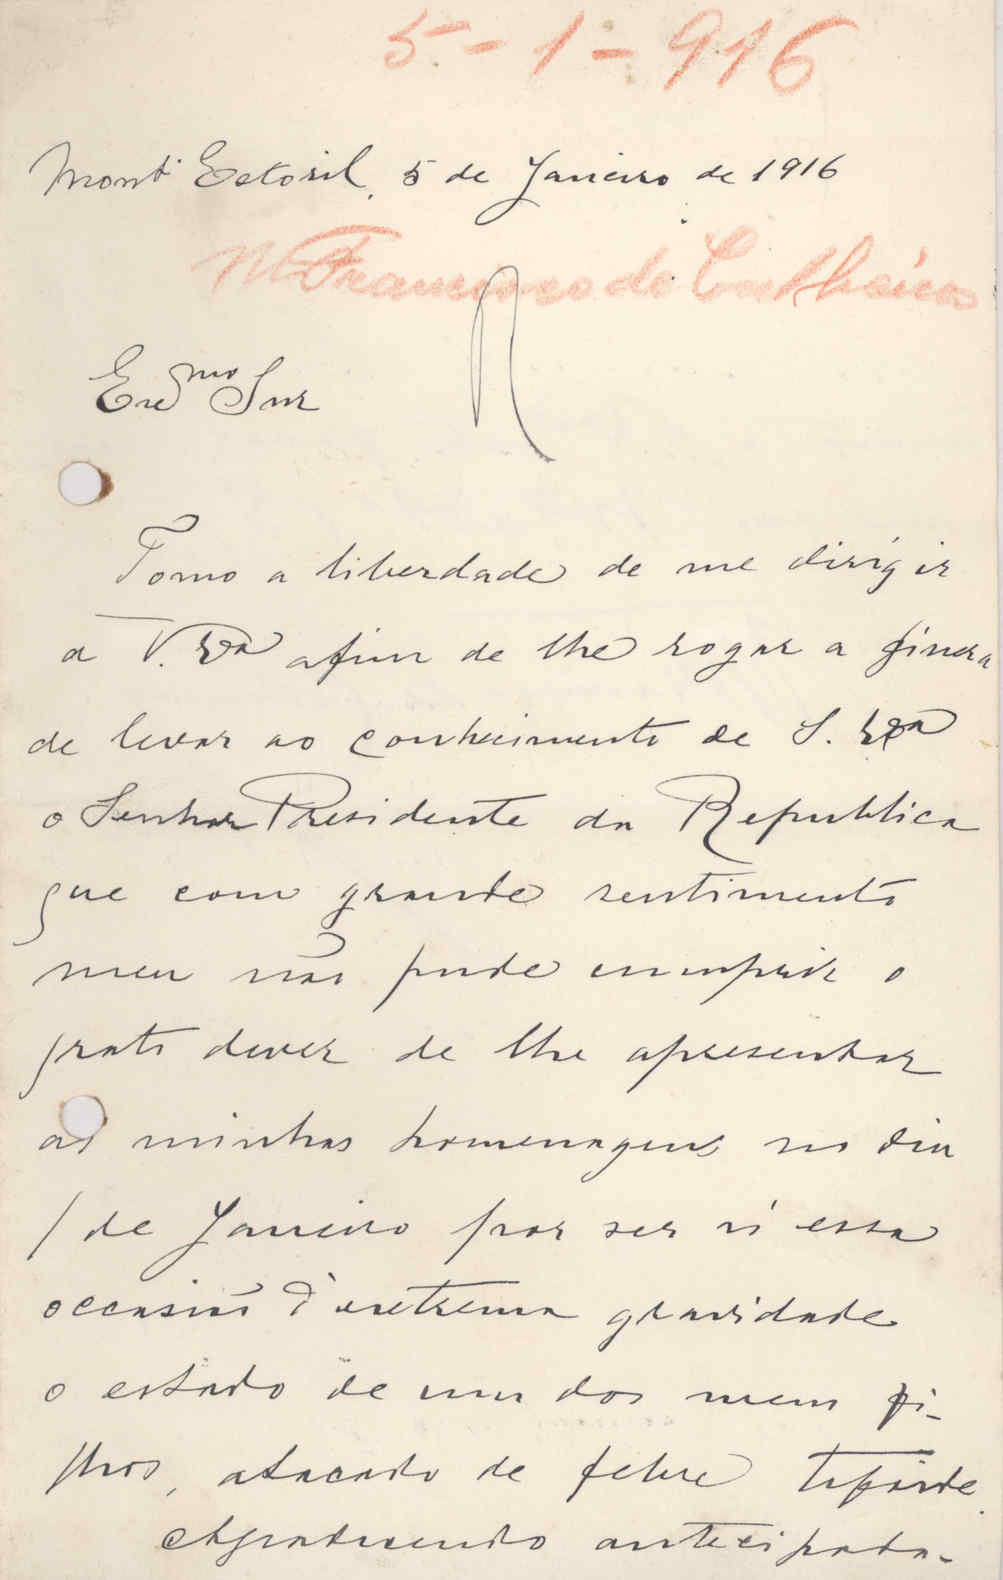 5-1-916
Mont' Estoril, 5 de Janeiro de 1916
Francisco de
Exc.mo Snr
Tomo a liberdade de me dirigir
a V. Exa afim de lhe rogar a fineza
de levar ao conhecimento de S. Exa
o Senhor Presidente da Republica
que com grande sentimento
meu não pude cumprir o
grato dever de lhe apresentar
as minhas homenagens no dia
1 de Janeiro por ser n'essa
occasião d'extrema gravidade
o estado de um dos meus fi-
lhos, atacado de febre tifoide.
Agradecendo antecipada-